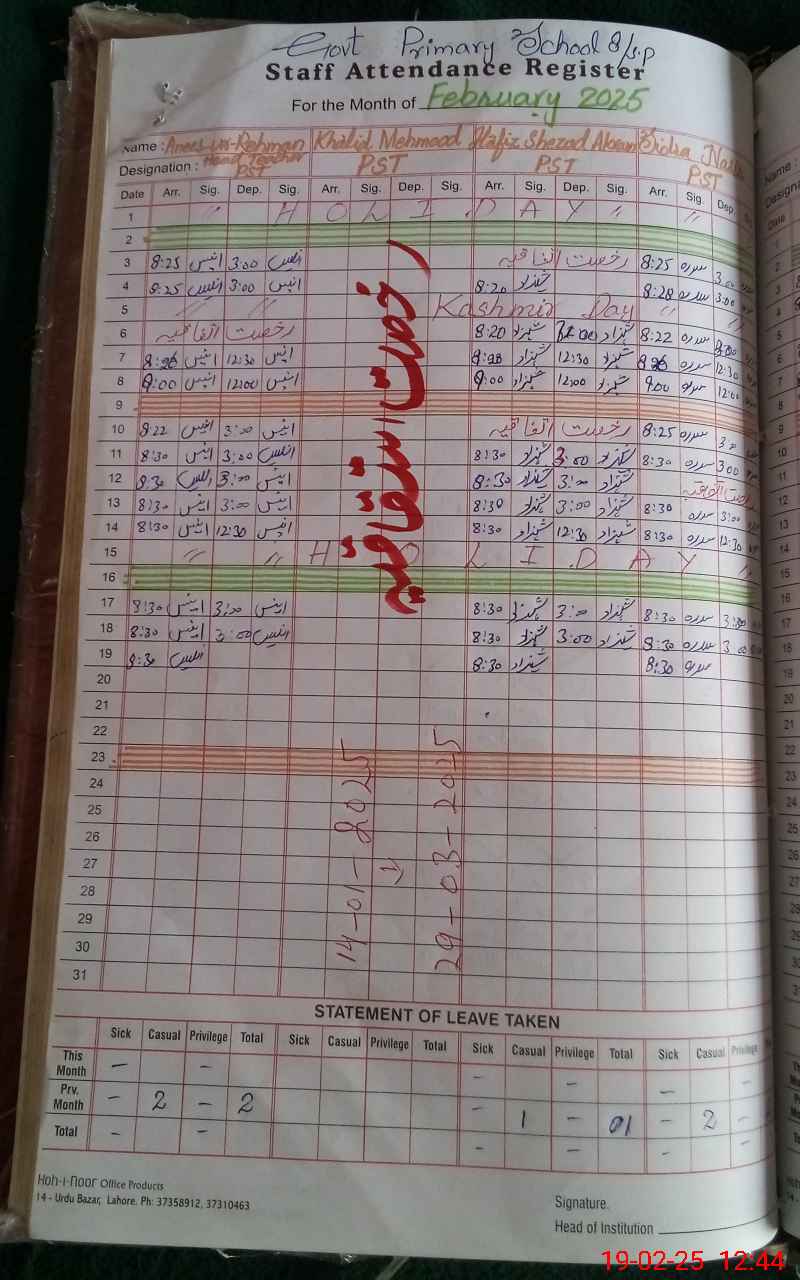 Govt Primary School 8/S.P
Staff Attendance Register
For the Month of February 2025
Name : Anees-ur-Rehman Khalid Mehmood Hafiz Shezad Akram Sidra
Designation : Head Teacher PST PST PST PST
Date Arr. Sig. Dep. Sig. Arr. Sig. Dep. Sig. Arr. Sig. Dep. Sig. Arr. Sig. Dep.
1 〃 H O L I DAY 〃 〃
2
3 8:25 انیس 3:00 انیس رخصت اتفاقیہ 8:25 سدرہ 3:00
4 8:25 انیس 3:00 انیس 8:20 شہزاد 8:28 سدرہ 3:00
5 〃 〃 Kashmir Day 〃 〃
6 رخصت اتفاقیہ 8:20 شہزاد شہزاد 8:22 سدرہ
7 انیس 12:30 انیس شہزاد 12:30 شہزاد سدرہ 12:30
8 9:00 انیس 12:00 انیس 9:00 شہزاد 12:00 شہزاد 9:00 سدرہ 12:00
9
10 8:22 انیس 3:00 انیس رخصت اتفاقیہ 8:25 سدرہ 3:00
11 8:30 انیس 3:00 انیس 8:30 شہزاد 3:00 شہزاد 8:30 سدرہ 3:00
12 8:30 انیس 3:00 انیس 8:30 شہزاد 3:00 شہزاد رخصت اتفاقیہ
13 8:30 انیس 3:00 انیس 8:30 شہزاد 3:00 شہزاد 8:30 سدرہ 3:00
14 8:30 انیس 12:30 انیس 8:30 شہزاد 12:30 شہزاد 8:30 سدرہ 12:30
15 〃 〃 H O L I D A Y 〃
16
17 8:30 انیس 3:00 انیس 8:30 شہزاد 3:00 شہزاد 8:30 سدرہ 3:00
18 8:30 انیس 3:00 انیس 8:30 شہزاد 3:00 شہزاد 8:30 سدرہ 3:00
19 8:30 انیس 8:30 شہزاد 8:30 سدرہ
20
21
22
23
24
25
26
27
28
29
30
31
رخصت
14-01-2025
29-03-2025
STATEMENT OF LEAVE TAKEN
Sick Casual Privilege Total Sick Casual Privilege Total Sick Casual Privilege Total Sick Casual Privilege
This Month - - - - - -
Prv. Month - 2 - 2 - 1 - 01 - 2 -
Total - - - - - -
Koh-i-noor Office Products
14 - Urdu Bazar, Lahore. Ph: 37358912, 37310463
Signature.
Head of Institution
19-02-25 12:44